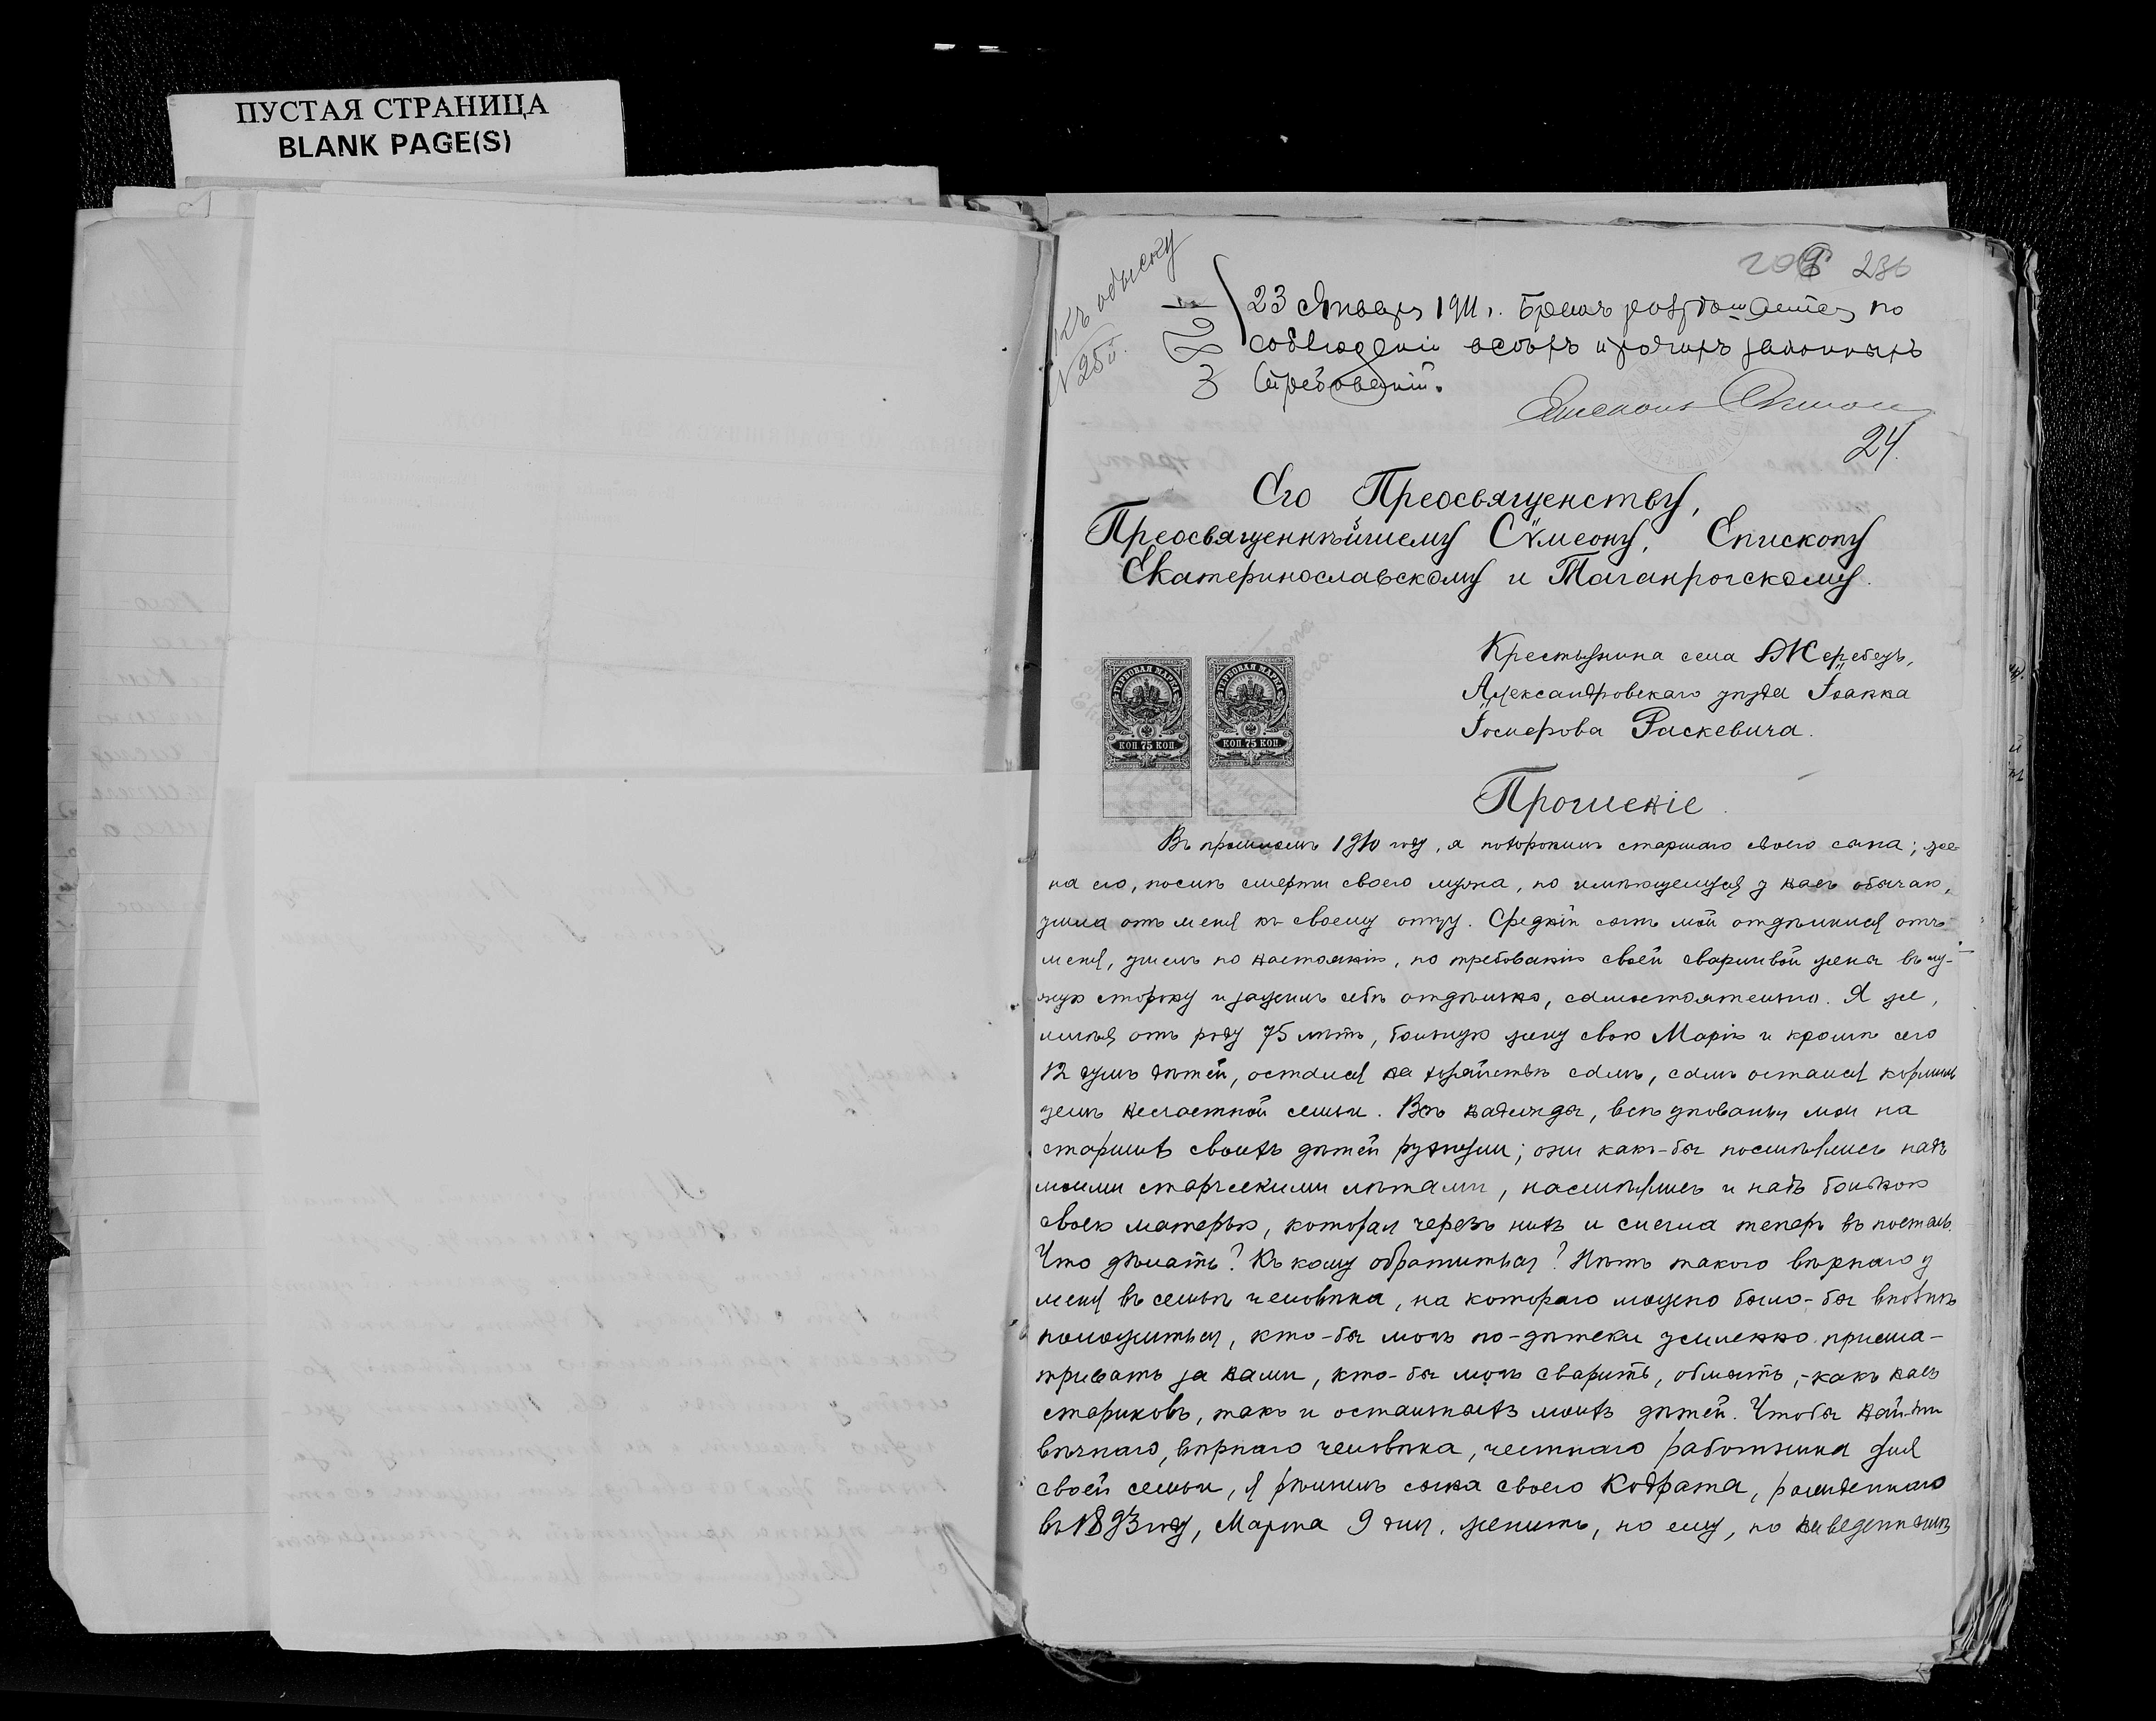 ПУСТАЯ СТРАНИЦА
BLANK PAGE(S)
Къ обыску
N 25й.
236
381
23 Января 1911 г. Бракъ разрѣшается по
соблюденіи всѣхъ прочихъ законныхъ
требованій.
Епископъ
24.
Его Преосвященству,
Преосвященнѣйшему Сѵмеону, Епископу
Екатеринославскому и Таганрогскому.
Крестьянина села Жеребецъ,
Александровскаго уѣзда Іоанна
Іосифова Раскевича.
ГЕРБОВАЯ МАРКА
КОП. 75 КОП.
ГЕРБОВАЯ МАРКА
КОП. 75 КОП.
Прошеніе.
Въ прошломъ 1910 году, я похоронилъ старшаго своего сына; же-
на его, послѣ смерти своего мужа, по имѣющемуся у насъ обычаю,
ушла отъ меня къ своему отцу. Средній сынъ мой отдѣлился отъ
меня, ушелъ по настоянію, по требованію своей сварливой жены въ чу-
жую сторону и зажилъ себѣ отдѣльно, самостоятельно. Я же,
имѣя отъ роду 75 лѣтъ, больную жену свою Марію и кромѣ сего
12 душъ дѣтей, остался на хозяйствѣ самъ, самъ остался кормиль
цемъ несчастной семьи. Всѣ надежды, всѣ упованія мои на
старшихъ своихъ дѣтей рухнули; они какъ-бы посмѣялись надъ
моими старческими лѣтами, насмѣялись и надъ больною
своею матерью, которая черезъ нихъ и слегла теперь въ постель.
Что дѣлать? Къ кому обратиться? Нѣтъ такого вѣрнаго у
меня въ семьѣ человѣка, на котораго можно было-бы вполнѣ
положиться, кто-бы могъ по-дѣтски усиленно присма-
тривать за нами, кто-бы могъ сварить, обмыть,-какъ насъ
стариковъ, такъ и остальныхъ моихъ дѣтей. Чтобы найти
вѣчнаго, вѣрнаго человѣка, честнаго работника для
своей семьи, я рѣшилъ сына своего Кодрата, рожденнаго
въ 1893 году, Марта 9 дня, женить, но ему, по наведеннымъ